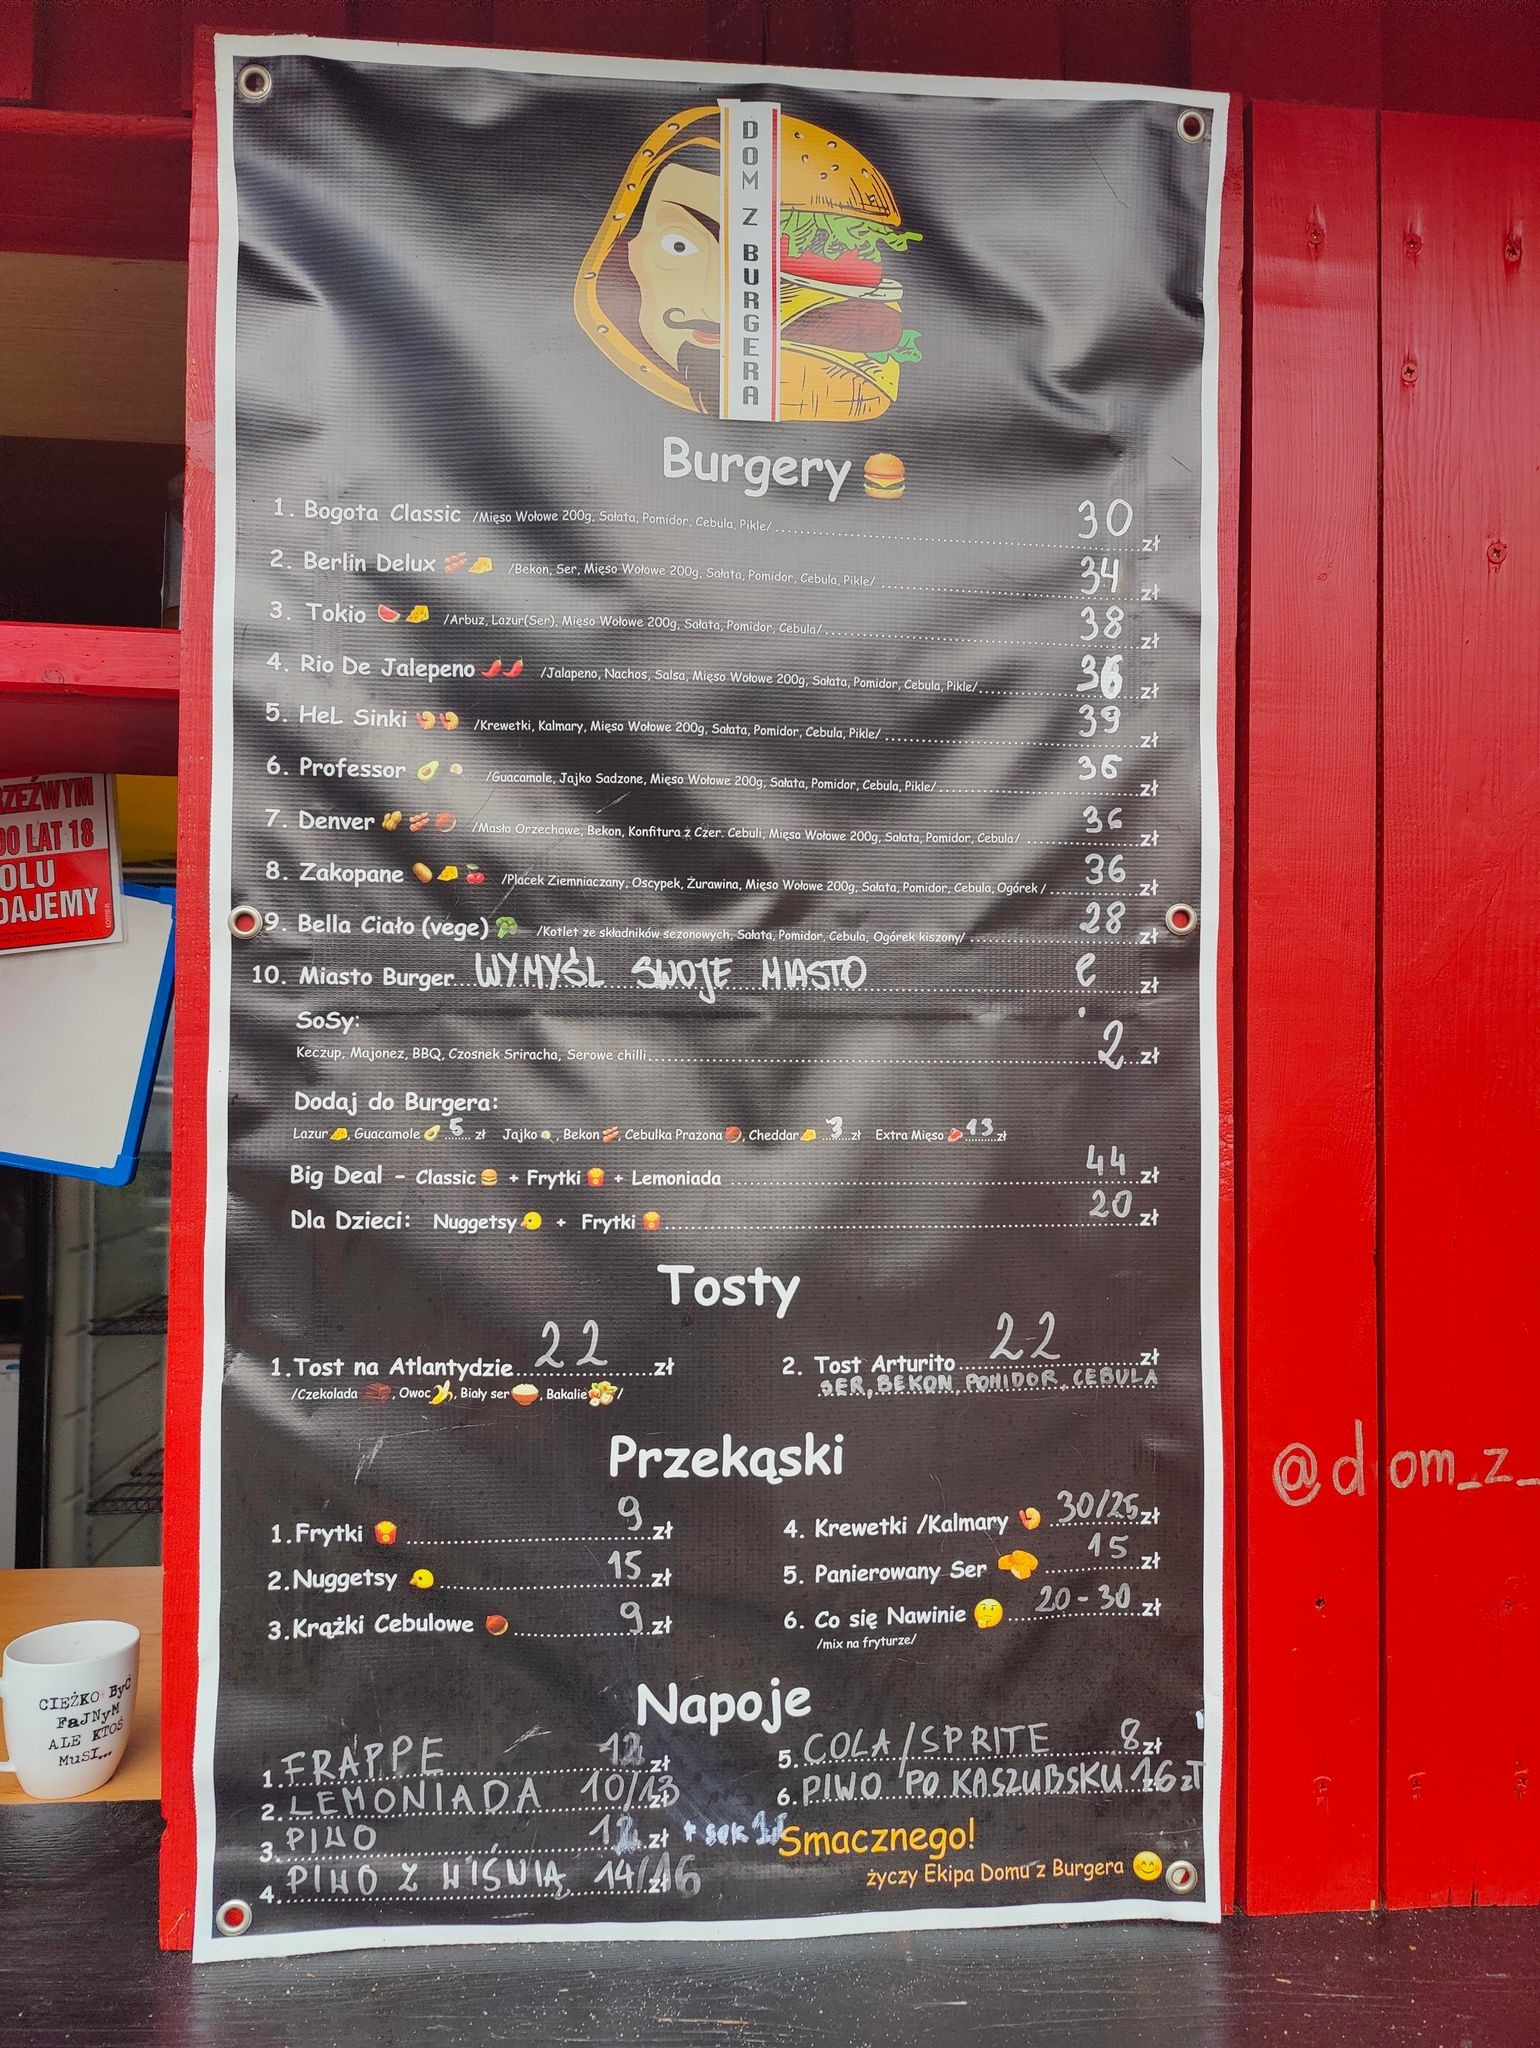 DOM Z BURGERA
Burgery
1. Bogota Classic /Mięso Wołowe 200g, Sałata, Pomidor, Cebula, Pikle/ 30 zł
2. Berlin Delux /Bekon, Ser, Mięso Wołowe 200g, Sałata, Pomidor, Cebula, Pikle/ 34 zł
3. Tokio /Arbuz, Lazur(Ser), Mięso Wołowe 200g, Sałata, Pomidor, Cebula/ 38 zł
4. Rio De Jalepeno /Jalapeno, Nachos, Salsa, Mięso Wołowe 200g, Sałata, Pomidor, Cebula, Pikle/ 36 zł
5. HeL Sinki /Krewetki, Kalmary, Mięso Wołowe 200g, Sałata, Pomidor, Cebula, Pikle/ 39 zł
6. Professor /Guacamole, Jajko Sadzone, Mięso Wołowe 200g, Sałata, Pomidor, Cebula, Pikle/ 36 zł
7. Denver /Masło Orzechowe, Bekon, Konfitura z Czer. Cebuli, Mięso Wołowe 200g, Sałata, Pomidor, Cebula/ 36 zł
8. Zakopane /Placek Ziemniaczany, Oscypek, Żurawina, Mięso Wołowe 200g, Sałata, Pomidor, Cebula, Ogórek / 36 zł
9. Bella Ciało (vege) /Kotlet ze składników sezonowych, Sałata, Pomidor, Cebula, Ogórek kiszony/ 28 zł
10. Miasto Burger WYMYŚL SWOJE MIASTO zł
SoSy:
Keczup, Majonez, BBQ, Czosnek Sriracha, Serowe chilli 2 zł
Dodaj do Burgera:
Lazur, Guacamole 5 zł Jajko, Bekon, Cebulka Prażona, Cheddar 3 zł Extra Mięso 13 zł
Big Deal - Classic + Frytki + Lemoniada 44 zł
Dla Dzieci: Nuggetsy + Frytki 20 zł
Tosty
1. Tost na Atlantydzie 22 zł
/Czekolada, Owoc, Biały ser, Bakalie/
2. Tost Arturito 22 zł
SER, BEKON, POMIDOR, CEBULA
Przekąski
1. Frytki 9 zł
2. Nuggetsy 15 zł
3. Krążki Cebulowe 9 zł
4. Krewetki /Kalmary 30/25 zł
5. Panierowany Ser 15 zł
6. Co się Nawinie 20-30 zł
/mix na fryturze/
Napoje
1. FRAPPE 12 zł
2. LEMONIADA 10/13 zł
3. PIWO 12 zł + sok
4. PIWO Z WIŚNIĄ 14/16 zł
5. COLA/SPRITE 8 zł
6. PIWO PO KASZUBSKU 16 zł
Smacznego!
życzy Ekipa Domu z Burgera
@dom_z_
LAT 18
CIĘŻKO BYĆ
FAJNYM
ALE KTOŚ
MUSI...